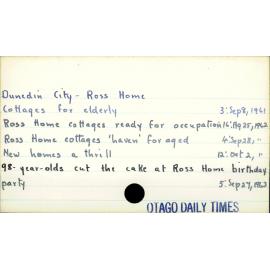 Dunedin City - Ross Home
Cottages for elderly 3: Sep 8, 1961
Ross Home cottages ready for occupation 16: Ag 25, 1962
Ross Home cottages 'haven' for aged 4: Sep 28, "
New homes a thrill 12: Oct 2, "
98-year-olds cut the cake at Ross Home birthday
party 5: Sep 27, 1963
OTAGO DAILY TIMES